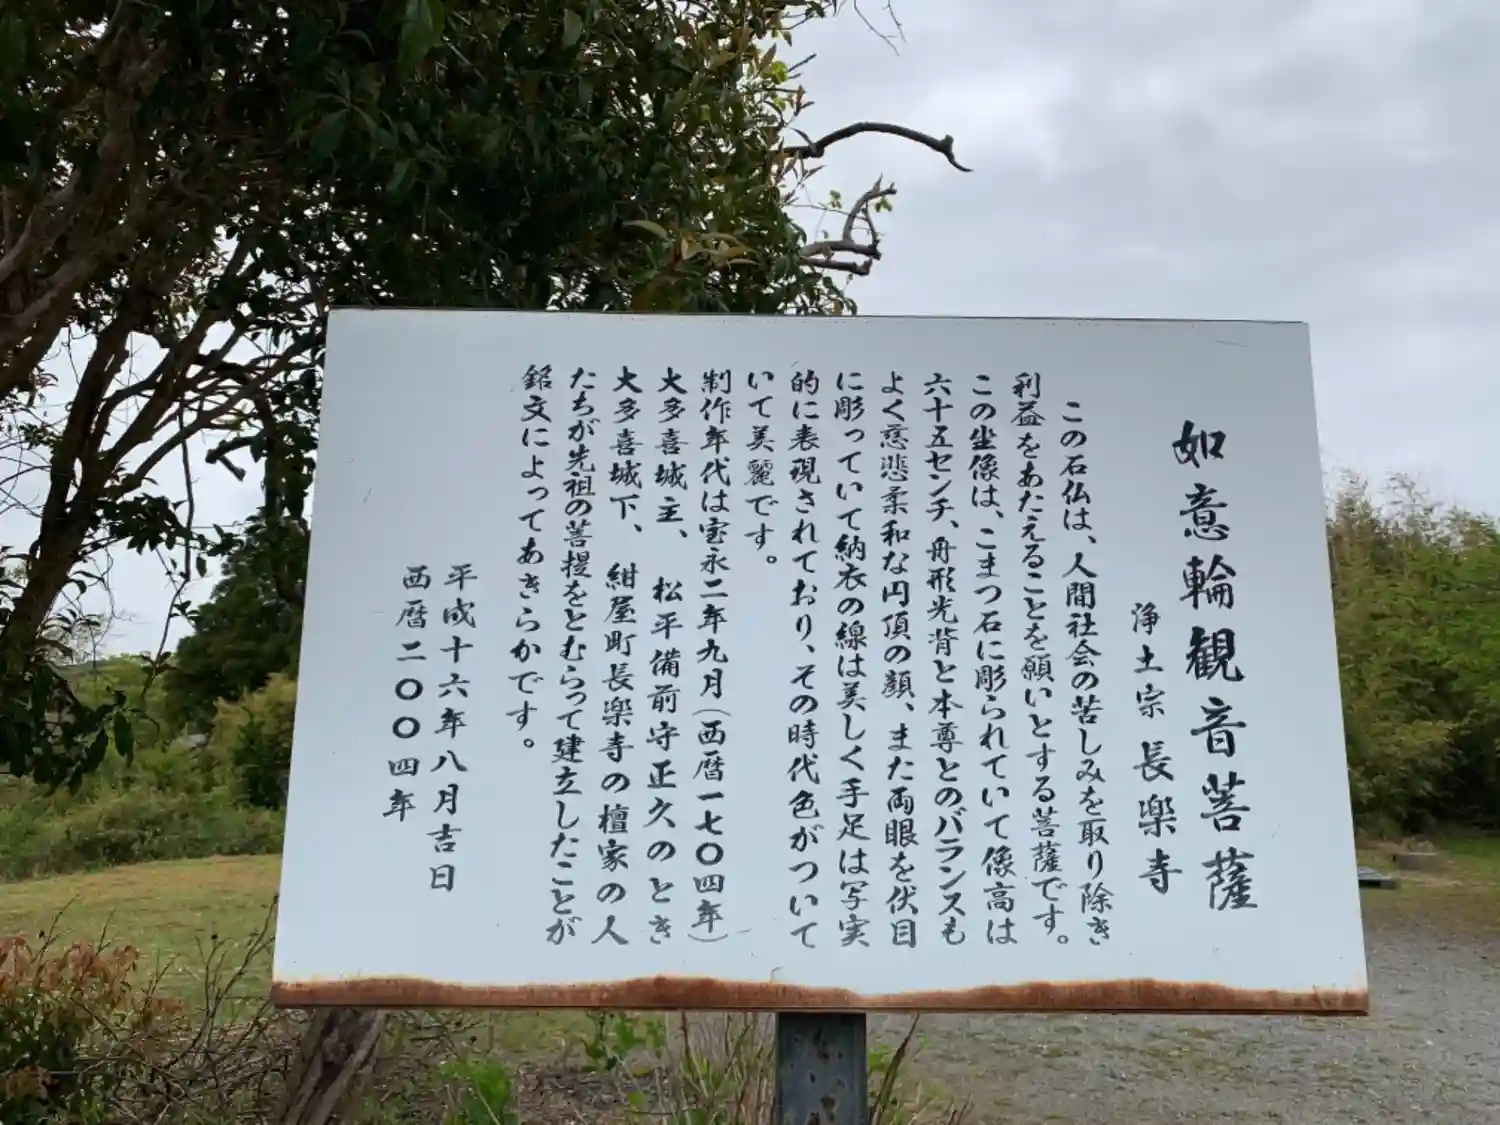 如意輪観音菩薩
浄土宗 長楽寺
この石仏は、人間社会の苦しみを取り除き
利益をあたえることを願いとする菩薩です。
この坐像は、こまつ石に彫られていて像高は
六十五センチ、舟形光背と本尊とのバランスも
よく慈悲柔和な円頂の顔、また両眼を伏目
に彫っていて納衣の線は美しく手足は写実
的に表現されており、その時代色がついて
いて美麗です。
制作年代は宝永二年九月(西暦一七〇四年)
大多喜城主、 松平備前守正久のとき
大多喜城下、 紺屋町長楽寺の檀家の人
たちが先祖の菩提をとむらって建立したことが
銘文によってあきらかです。
平成十六年八月吉日
西暦二〇〇四年